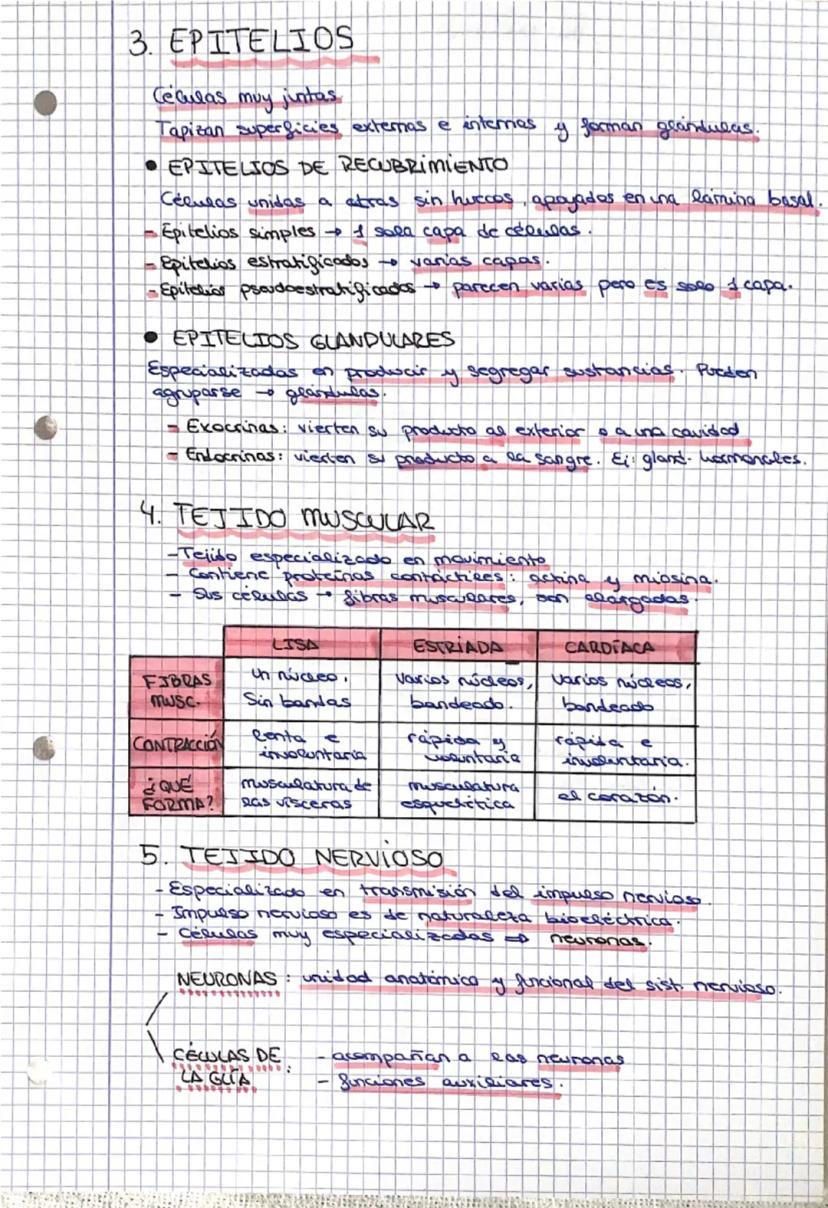 3. EPITELIOS
Células muy juntas
Tapizan superficies externas e internas y forman glándulas.
• EPITELIOS DE RECUBRIMIENTO
Células unidas a otras sin huecos, apoyados en una lámina basal.
- Epitelios simples → 1 sola capa de células.
- Epitelios estratificados → varias capas.
- Epitelios pseudoestratificados → parecen varias pero es solo 1 capa.
• EPITELIOS GLANDULARES
Especializadas en producir y segregar sustancias. Pueden
agruparse → glándulas.
- Exocrinas: vierten su producto al exterior o a una cavidad
- Endocrinas: vierten su producto a la sangre. Ej: gland. hormonales.
4. TEJIDO MUSCULAR
- Tejido especializado en movimiento
- Contiene proteínas contráctiles: actina y miosina.
- Sus células → fibras musculares, son alargadas.
LISA ESTRIADA CARDÍACA
FIBRAS MUSC. un núcleo, Sin bandas varios núcleos, bandeado. varios núcleos, bandeado
CONTRACCIÓN lenta e involuntaria rápida y voluntaria rápida e involuntaria.
¿QUÉ FORMA? musculatura de las vísceras musculatura esquelética el corazón.
5. TEJIDO NERVIOSO
- Especializado en transmisión del impulso nervioso.
- Impulso nervioso es de naturaleza bioeléctrica.
- Células muy especializadas ⇒ neuronas.
NEURONAS: unidad anatómica y funcional del sist. nervioso.
CÉLULAS DE LA GLÍA: - acompañan a las neuronas
- funciones auxiliares.